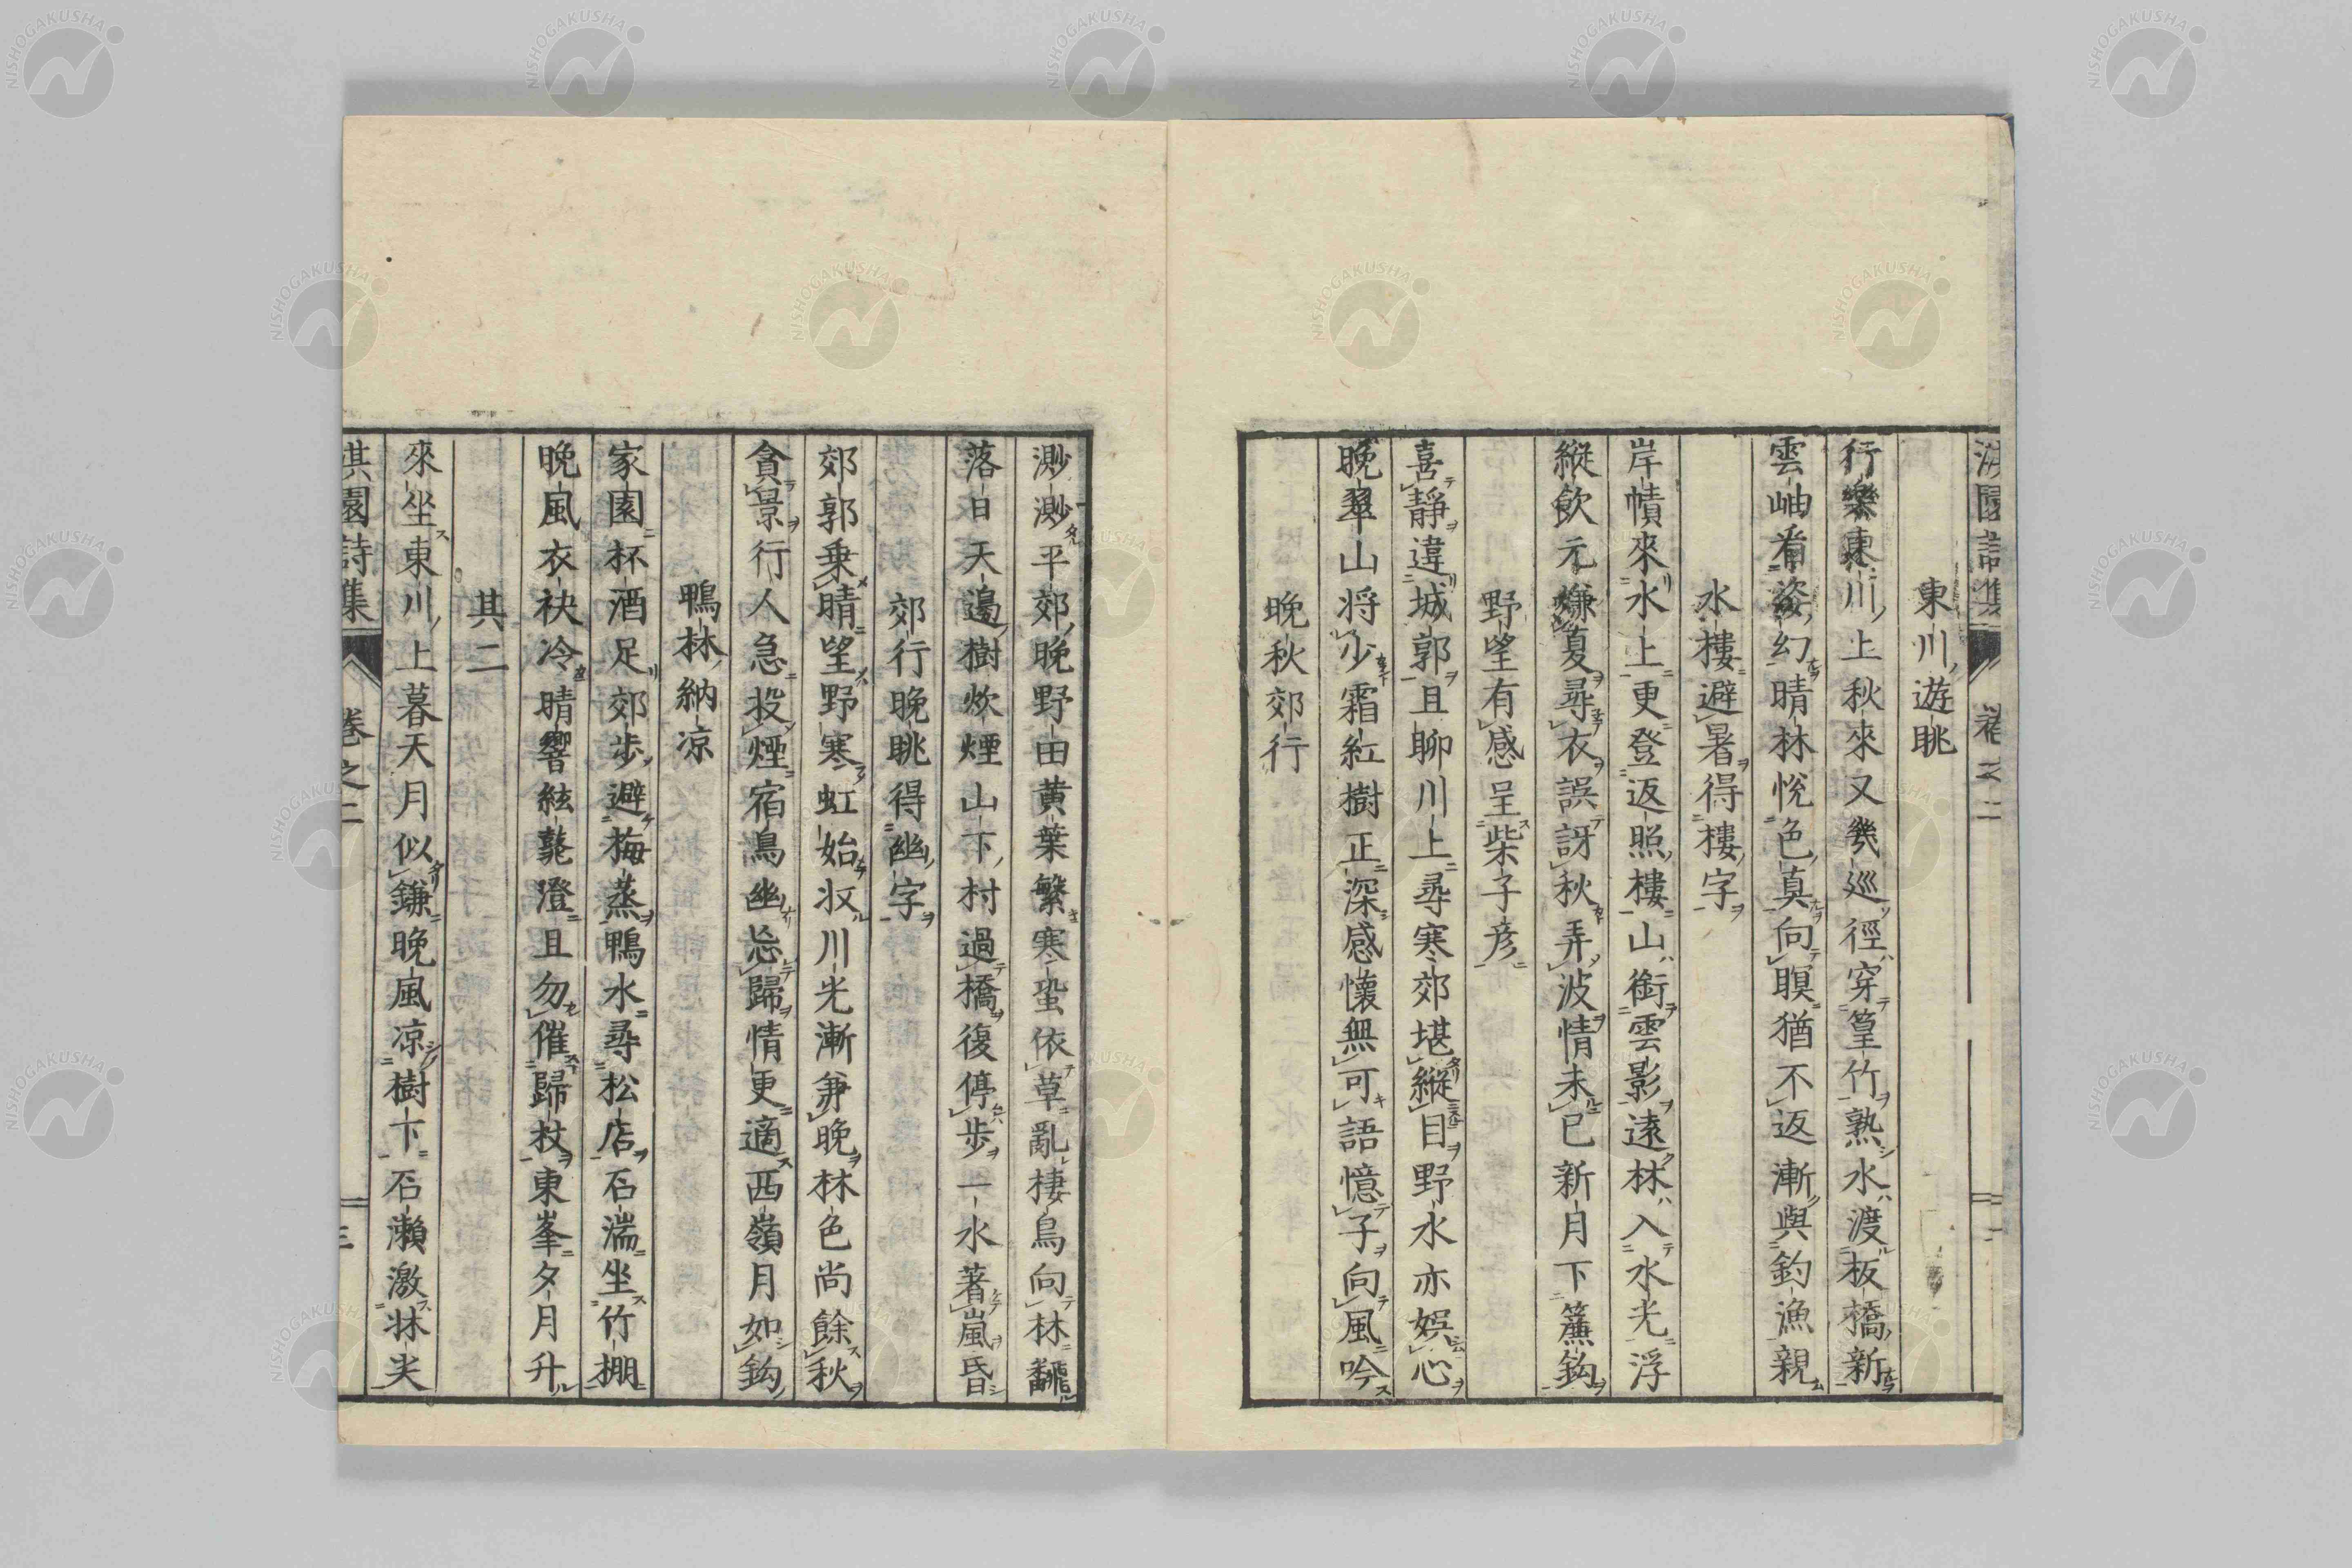 淇園詩集
卷之二
東川遊眺
行樂東川上秋來又幾巡徑穿篁竹熟水渡板橋新
雲岫看姿幻晴林悅色真向暝猶不返漸與釣漁親
水樓避暑得樓字
岸幘來水上更登返照樓山銜雲影遠林入水光浮
縱飲元嫌夏尋衣誤訝秋弄波情未已新月下簾鈎
野望有感呈柴子彥
喜靜違城郭且聊川上尋寒郊堪縱目野水亦娛心
晚翠山将少霜紅樹正深感懷無可語憶子向風吟
晚秋郊行
渺渺平郊晚野田黄葉繁寒蛩依草亂棲鳥向林翻
落日天邊樹炊煙山下村過橋復停步一水著嵐昏
郊行晚眺得幽字
郊郭乘晴望野寒虹始收川光漸弟晚林色尚餘秋
貪景行人急投煙宿鳥幽忘歸情更適西嶺月如鈎
鴨林納凉
家園杯酒足郊步避梅蒸鴨水尋松店石湍坐竹棚
晚風衣袂冷晴響絃甏澄且勿催歸杖東峯夕月升
其二
來坐東川上暮天月似鎌晚風凉樹下石瀨激牀尖
淇園詩集
卷之二
三